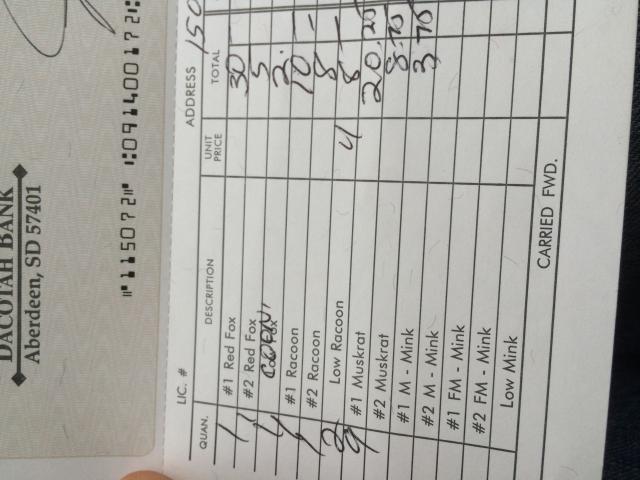 DACOTAH BANK
Aberdeen, SD 57401
⑈115072⑈ ⑆091400172⑆
LIC. # ADDRESS 150
QUAN. DESCRIPTION UNIT PRICE TOTAL
1 #1 Red Fox 30
1 #2 Red Fox 5
1 2.
1 #1 Racoon 10 -
#2 Racoon 8 -
2 Low Racoon 4 8
9 #1 Muskrat 20.25
#2 Muskrat 8.70
#1 M - Mink 3.70
#2 M - Mink
#1 FM - Mink
#2 FM - Mink
Low Mink
CARRIED FWD.